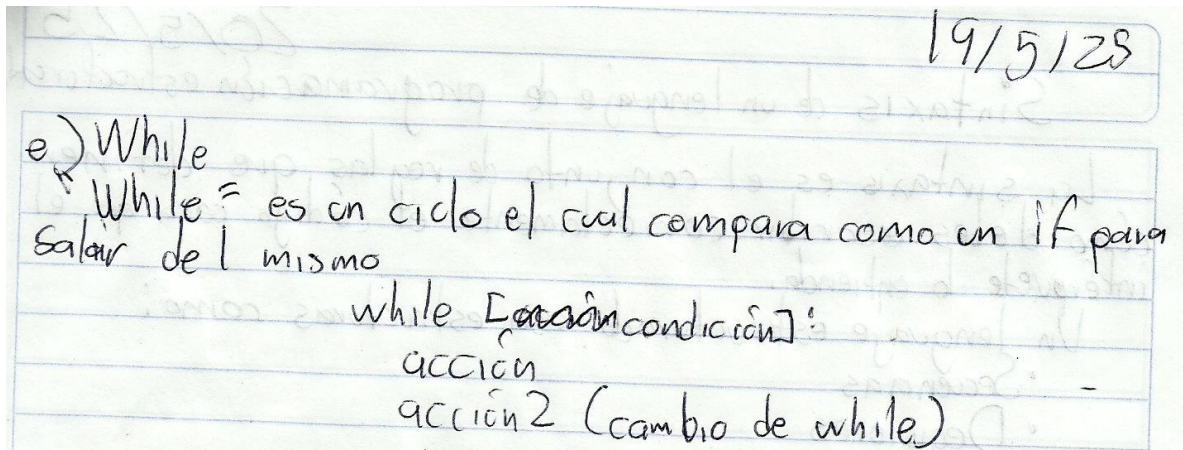 19/5/25
e) While
While = es un ciclo el cual compara como un if para
salir del mismo
while [condición]:
acción
acción2 (cambio de while)